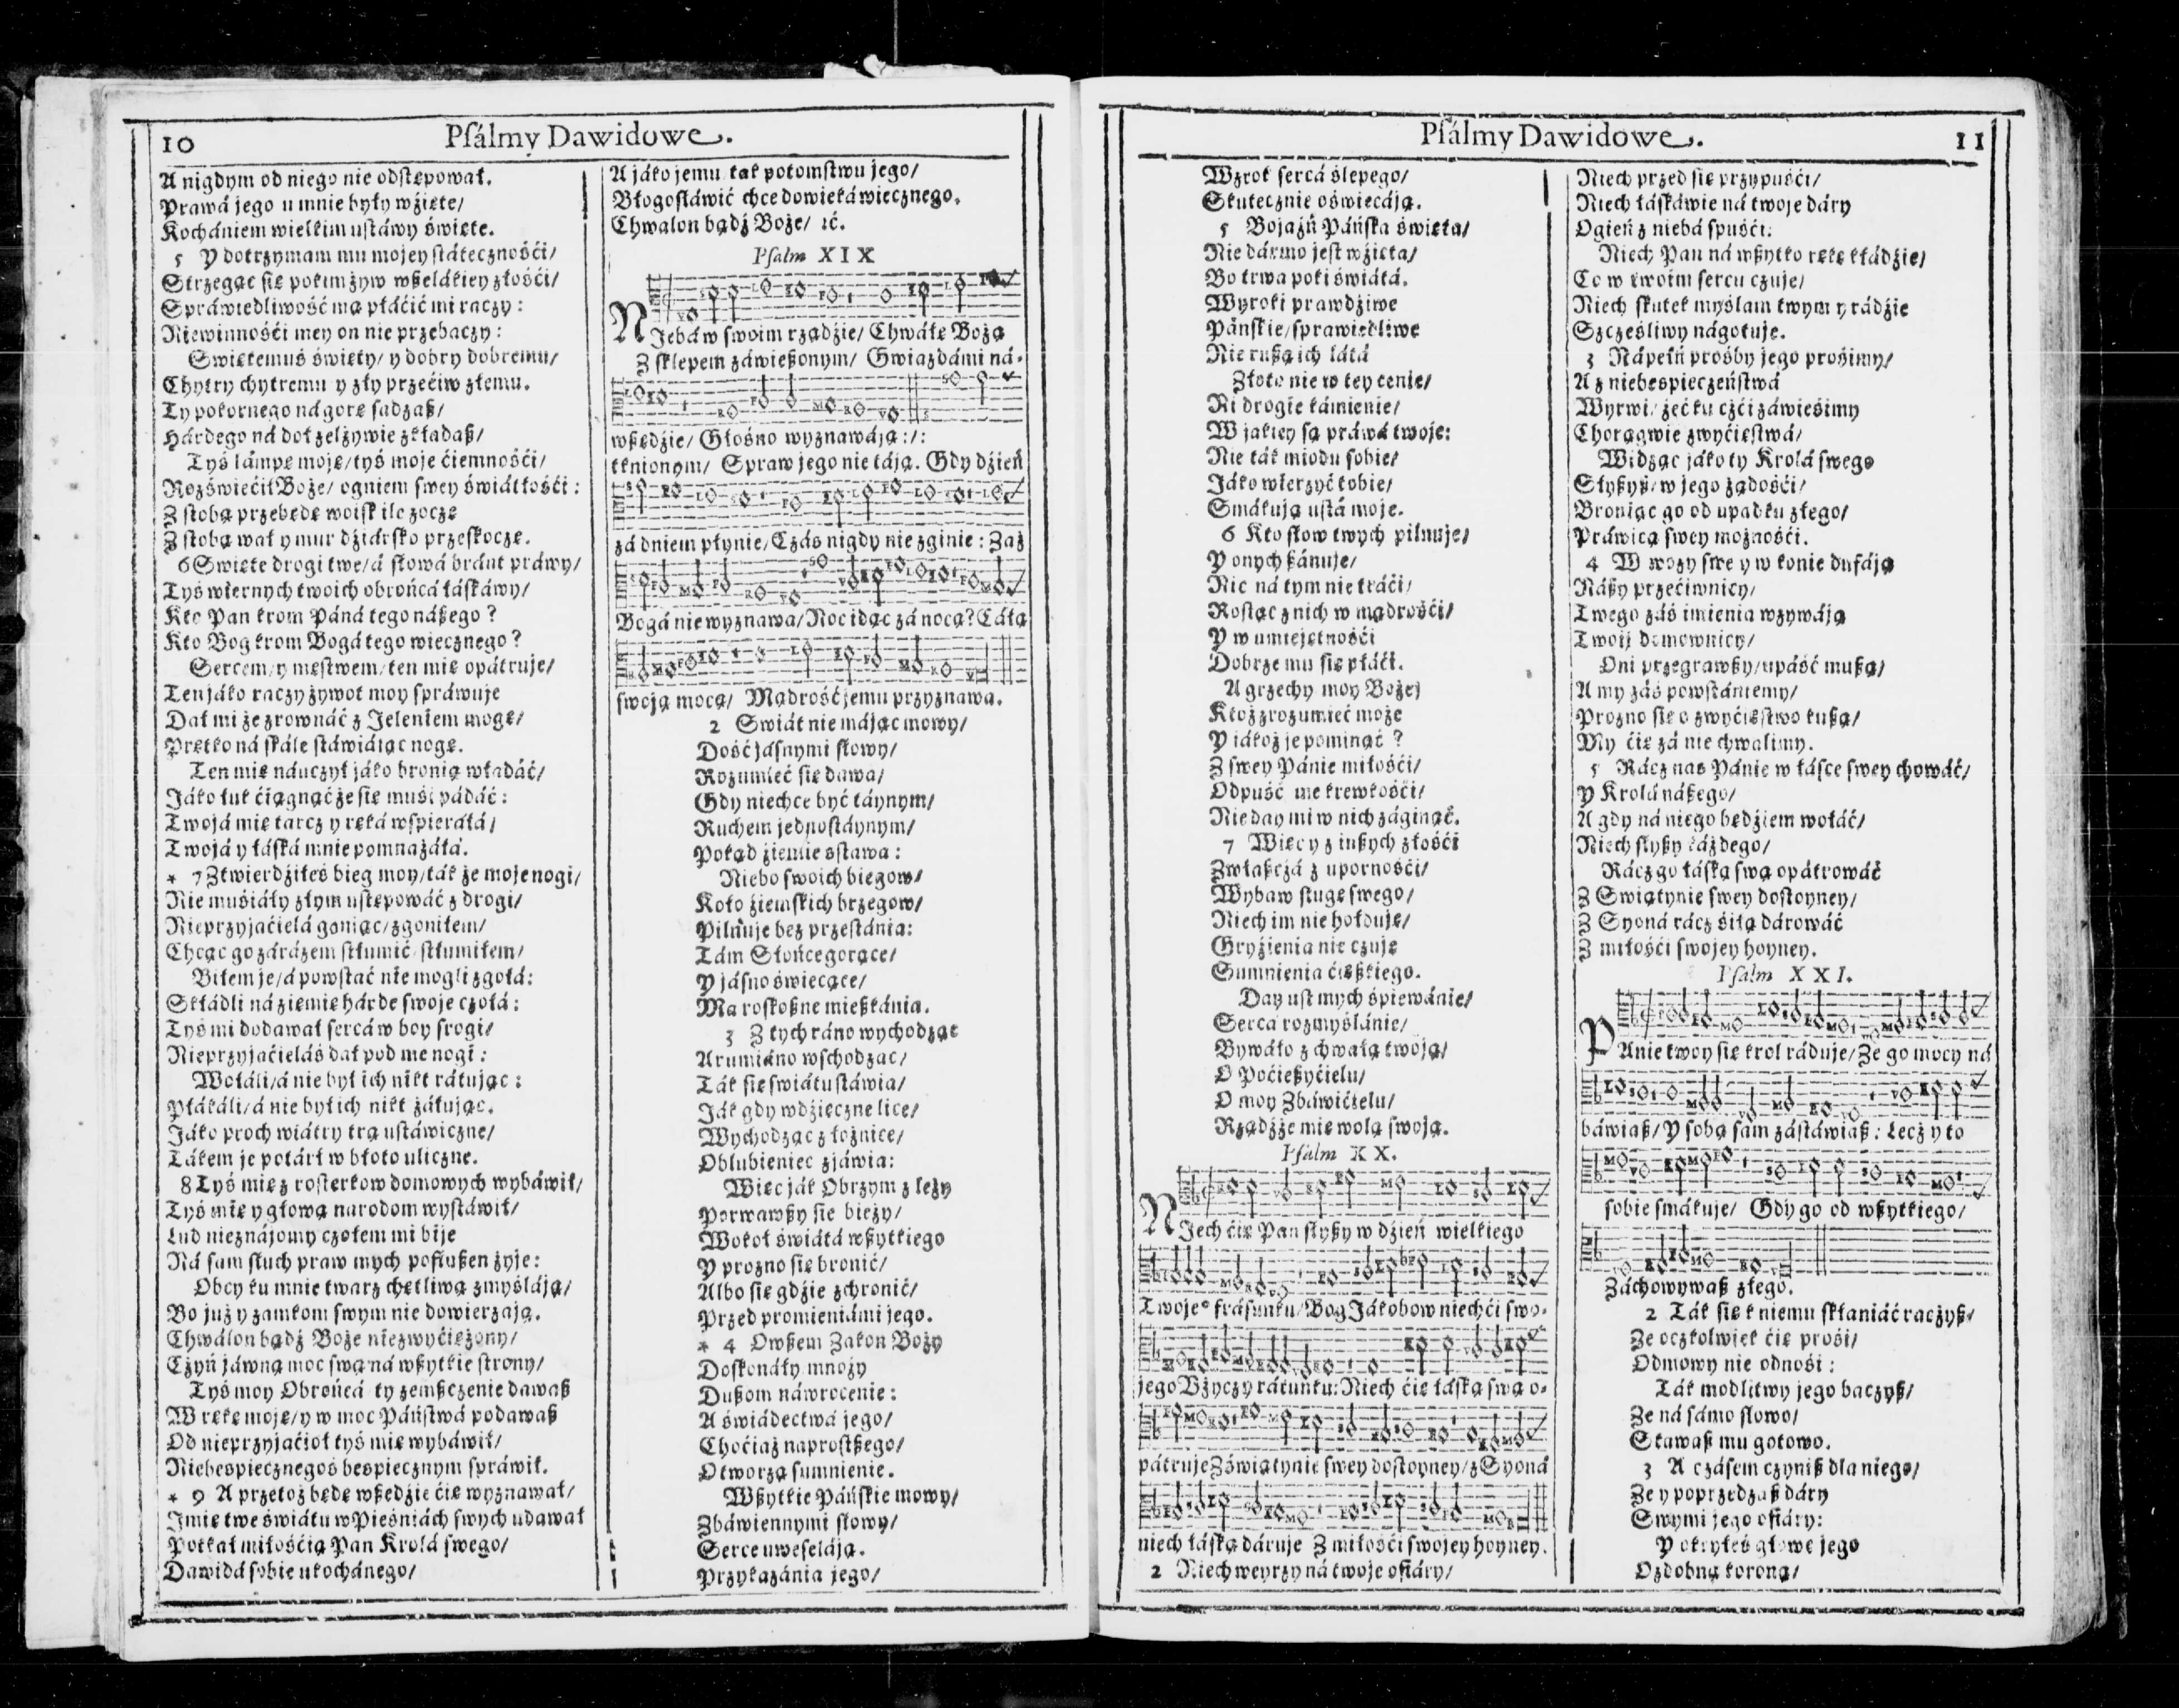 10 Psálmy Dawidowe.
A nigdym od niego nie odstępował.
Prawá jego u mnie były wżięte/
Kochániem wielkim ustáwy święte.
5 Y dotrzymam mu mojey státecznośći/
Strzegąc się pokim żyw wßelákiey złośći/
Spráwiedliwość mą płáćić mi raczy:
Niewinnośći mey on nie przebaczy:
Swiętemuś święty/ y dobry dobremu/
Chytry chytremu y zły przećiw złemu.
Ty pokornego ná gorę sadzaß/
Hárdego ná doł zelżywie zkładaß/
Tyś lámpę moję/ tyś moje ćiemnośći/
Rozświećił Boże/ ogniem swey świátłośći:
Z stobą przebędę woisk ile zoczę
Z stobą wał y mur dźiársko przeskoczę.
6 Swięte drogi twe/ á słowá bránt práwy/
Tyś wiernych twoich obrońcá łáskáwy/
Kto Pan krom Páná tego náßego?
Kto Bog krom Bogá tego wiecznego?
Sercem/ y męstwem/ ten mię opátruje/
Ten jáko raczy żywot moy spráwuje
Dał mi że zrownáć z Jeleniem mogę/
Prętko ná skále stáwiáiąc nogę.
Ten mię náuczył jáko bronią władáć/
Jáko łuk ćiągnąć że się muśi pádáć:
Twojá mię tarcz y ręká wspieráłá/
Twojá y łáská mnie pomnażáłá.
* 7 Ztwierdźiłeś bieg moy/ ták że moje nogi/
Nie muśiáły złym ustępowáć z drogi/
Nieprzyjaćielá goniąc/ zgoniłem/
Chcąc go zárázem stłumić/ stłumiłem/
Biłem je/ á powstać nie mogli zgołá:
Skłádli ná ziemię hárde swoje czołá:
Tyś mi dodawał sercá w boy srogi/
Nieprzyjaćielás dał pod me nogi:
Wołáli/ á nie był ich nikt rátując:
Płákáli/ á nie był ich nikt żáłując.
Jáko proch wiátry trą ustáwiczne/
Tákem je potárł w błoto uliczne.
8 Tyś mię z rosterkow domowych wybáwił/
Tyś mię y głową narodom wystáwił/
Lud nieznájomy czołem mi bije
Ná sam słuch praw mych poslußen żyje:
Obcy ku mnie twarz chętliwą zmyśláją/
Bo już y zamkom swym nie dowierzają.
Chwálon bądź Boże niezwyćiężony/
Czyń jáwną moc swą ná wßytkie strony/
Tyś moy Obrońcá ty zemßczenie dawaß
W rękę moję/ y w moc Páństwá podawaß
Od nieprzyjaćioł tyś mię wybáwił/
Niebespiecznegoś bespiecznym spráwił.
* 9 A przetoż będę wßędźie ćię wyznawał/
Imię twe świátu w Pieśniách swych udawał
Potkał miłośćią Pan Krolá swego/
Dawidá sobie ukochánego/
A jáko jemu tak potomstwu jego/
Błogosláwić chce do wieká wiecznego.
Chwalon bądź Boże/ ɾć.
Psalm XIX
NJebá w swoim rządźie/ Chwáłę Bożą
Z sklepem záwießonym/ Gwiazdámi ná-
wßędźie/ Głośno wyznawáją:/:
tknionym/ Spraw jego nie táją. Gdy dźień
zá dniem płynie/ Czás nigdy nie zginie: Zaż
Bogá nie wyznawa/ Noc idąc zá nocą? Cáłą
swoją mocą/ Mądrość jemu przyznawa.
2 Swiát nie májąc mowy/
Dość jásnymi słowy/
Rozumieć się dawa/
Gdy niechce być táynym/
Ruchem jednostáynym/
Pokąd żiemie sstawa:
Niebo swoich biegow/
Koło żiemskich brzegow/
Pilnuje bez przestánia:
Tám Słońce gorące/
Y jásno świecące/
Ma roskoßne mießkánia.
3 Z tych ráno wychodząc
A rumiáno wschodząc/
Ták się swiátu stáwia/
Ják gdy wdźięczne lice/
Wychodząc z łożnice/
Oblubieniec zjáwia:
Więc ják Obrzym z leży
Porwawßy się bieży/
Wokoł świátá wßytkiego
Y prozno się bronić/
Albo się gdźie zchronić/
Przed promieniámi jego.
* 4 Owßem Zakon Boży
Doskonáły mnoży
Dußom náwrocenie:
A świádectwá jego/
Choćiaż naprostßego/
Otworzą sumnienie.
Wßytkie Páńskie mowy/
Zbáwiennymi słowy/
Serce uweseláją.
Przykazánia jego/
Psálmy Dawidowe. 11
Wzrok sercá ślepego/
Skutecznie oświecáją.
5 Bojaźń Páńska święta/
Nie dármo jest wżięta/
Bo trwa poki świátá.
Wyroki prawdźiwe
Páńskie/ sprawiedliwe
Nie rußą ich látá
Złoto nie w tey cenie/
Ni drogie kámienie/
W jakiey są práwá twoje:
Nie ták miodu sobie/
Jáko wierzyć tobie/
Smákują ustá moje.
6 Kto słow twych pilnuje/
Y onych ßánuje/
Nic ná tym nie tráći/
Rostąc z nich w mądrośći/
Y w umiejętnośći
Dobrze mu się płáći.
A grzechy moy Boże/
Ktoż zrozumieć może
Y iákoż je pominąć?
Z swey Pánie miłośći/
Odpuść me krewkośći/
Nie day mi w nich záginąć.
7 Więc y z inßych złośći
Zwłaßczá z upornośći/
Wybaw sługę swego/
Niech im nie hołduje/
Gryźienia nie czuje
Sumnienia ćięßkiego.
Day ust mych śpiewánie/
Sercá rozmyślánie/
Bywáło z chwałą twoją/
O Poćießyćielu/
O moy Zbáwićielu/
Rządźże mię wolą swoją.
Psalm XX.
NJech ćię Pan słyßy w dźień wielkiego
Twojeº frásunku/ Bog Jákobow niech ći swo-
jego Vżyczy rátunku: Niech ćię łáską swą o-
pátruje Z świątynie swey dostoyney/ z Syoná
niech łáską dáruje Z miłośći swojey hoyney.
2 Niech weyrzy ná twoje ofiáry/
Niech przed się przypuśći/
Niech łáskáwie ná twoje dáry
Ogień z niebá spuśći:
Niech Pan ná wßytko rękę kłádźie/
Co w twoim sercu czuje/
Niech skutek myślam twym y rádźie
Szczęśliwy nágotuje.
3 Nápełń prośby jego prośimy/
A z niebespieczeństwá
Wyrwi/ żeć ku czći záwieśimy
Chorągwie zwyćięstwá/
Widząc jáko ty Krolá swego
Słyßyß/ w jego żądośći/
Broniąc go od upadku złego/
Práwicą swey możnośći.
4 W wozy swe y w konie dufáją
Náßy przećiwnicy/
Twego záś imienia wzywáją
Twoij domownicy/
Oni przegrawßy/ upáść mußą/
A my záś powstániemy/
Prozno się o zwyćięstwo kußą/
My ćię zá nie chwalimy.
5 Rácz nas Pánie w łásce swey chowáć/
Y Krolá náßego/
A gdy ná niego będźiem wołáć/
Niech słyßy káżdego/
Rácz go łáską swą opátrowáć
Z Swiątynie swey dostoyney/
Z Syoná rácz śiłą dárowáć
Z miłośći swojey hoyney.
Psalm XXI.
PAnie twoy się krol ráduje/ Że go mocy ná
báwiaß/ Y sobą sam zástáwiaß: Lecż y to
sobie smákuje/ Gdy go od wßytkiego/
Záchowywaß złego.
2 Ták się k niemu skłaniáć raczyß/
Że oczkolwiek ćię prośi/
Odmowy nie odnośi:
Ták modlitwy jego baczyß/
Że ná sámo słowo/
Stawaß mu gotowo.
3 A czásem czyniß dla niego/
Że y poprzedzaß dáry
Swymi jego ofiáry:
Y okryłeś głowę jego
Ozdobną koroną/